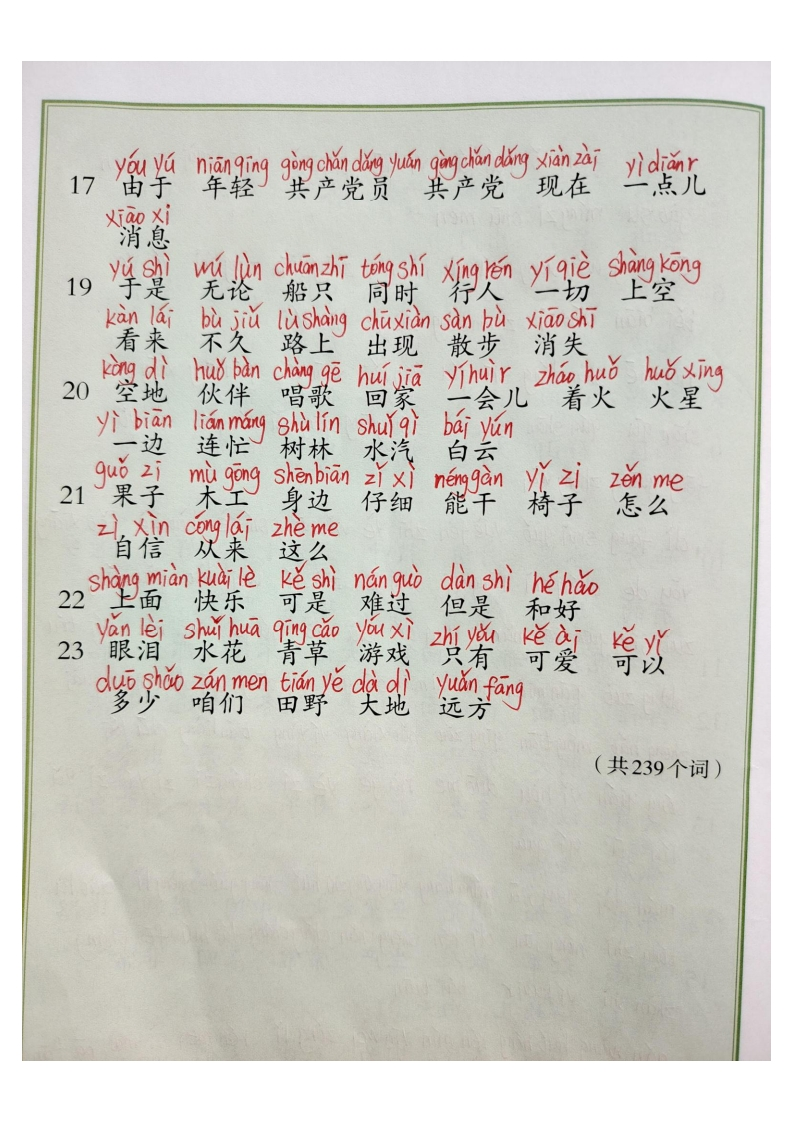 yóu yú nián qīng gòng chǎn dǎng yuán gòng chǎn dǎng xiàn zài yì diǎn r
17 由于 年轻 共产党员 共产党 现在 一点儿
xiāo xi
消息
yú shì wú lùn chuán zhī tóng shí xíng rén yí qiè shàng kōng
19 于是 无论 船只 同时 行人 一切 上空
kàn lái bù jiǔ lù shàng chū xiàn sàn bù xiāo shī
看来 不久 路上 出现 散步 消失
kòng dì huǒ bàn chàng gē huí jiā yí huìr zháo huǒ huǒ xīng
20 空地 伙伴 唱歌 回家 一会儿 着火 火星
yì biān lián máng shù lín shuǐ qì bái yún
一边 连忙 树林 水汽 白云
guǒ zi mù gōng shēn biān zǐ xì néng gàn yǐ zi zěn me
21 果子 木工 身边 仔细 能干 椅子 怎么
zì xìn cóng lái zhè me
自信 从来 这么
shàng miàn kuài lè kě shì nán guò dàn shì hé hǎo
22 上面 快乐 可是 难过 但是 和好
yǎn lèi shuǐ huā qīng cǎo yóu xì zhí yǒu kě ài kě yǐ
23 眼泪 水花 青草 游戏 只有 可爱 可以
duō shǎo zán men tián yě dà dì yuǎn fāng
多少 咱们 田野 大地 远方
（共239个词）